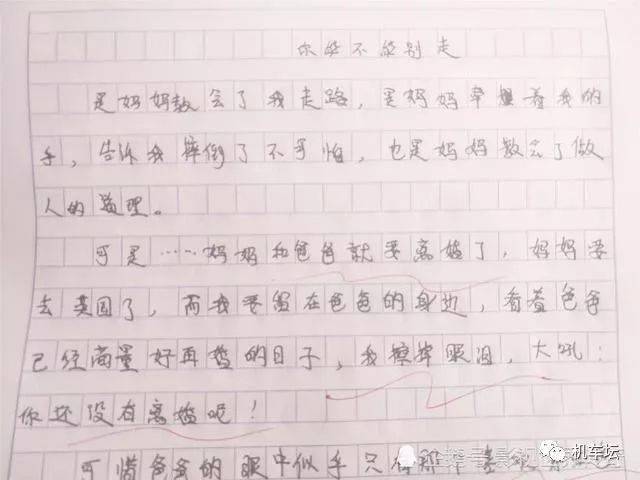 你能不能别走
是妈妈教会了我走路，是妈妈牵着我的
手，告诉我摔倒了不可怕，也是妈妈教会了做
人的道理。
可是……妈妈和爸爸就要离婚了，妈妈要
去英国了，而我要留在爸爸的身边，看着爸爸
已经商量好再婚的日子，我擦掉眼泪，大吼：
你还没有离婚呢！
可惜爸爸的眼中似乎只有那个
机车坛